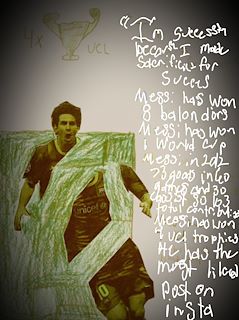 4x
UCL
"I'm success
because I made
sacrifices for
success
Messi has won
8 balon dors
Messi has won
1 World Cup
Messi in 2012
games and 30
total contributies
Messi has won
4 ucl trophies
He has the
most liked
Post on
Insta
unicef
10